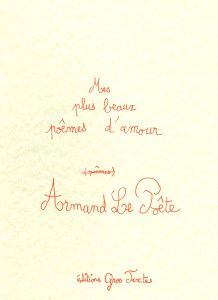 Mes
plus beaux
poèmes d'amour
(poèmes)
Armand Le Poête
Editions Gros Textes